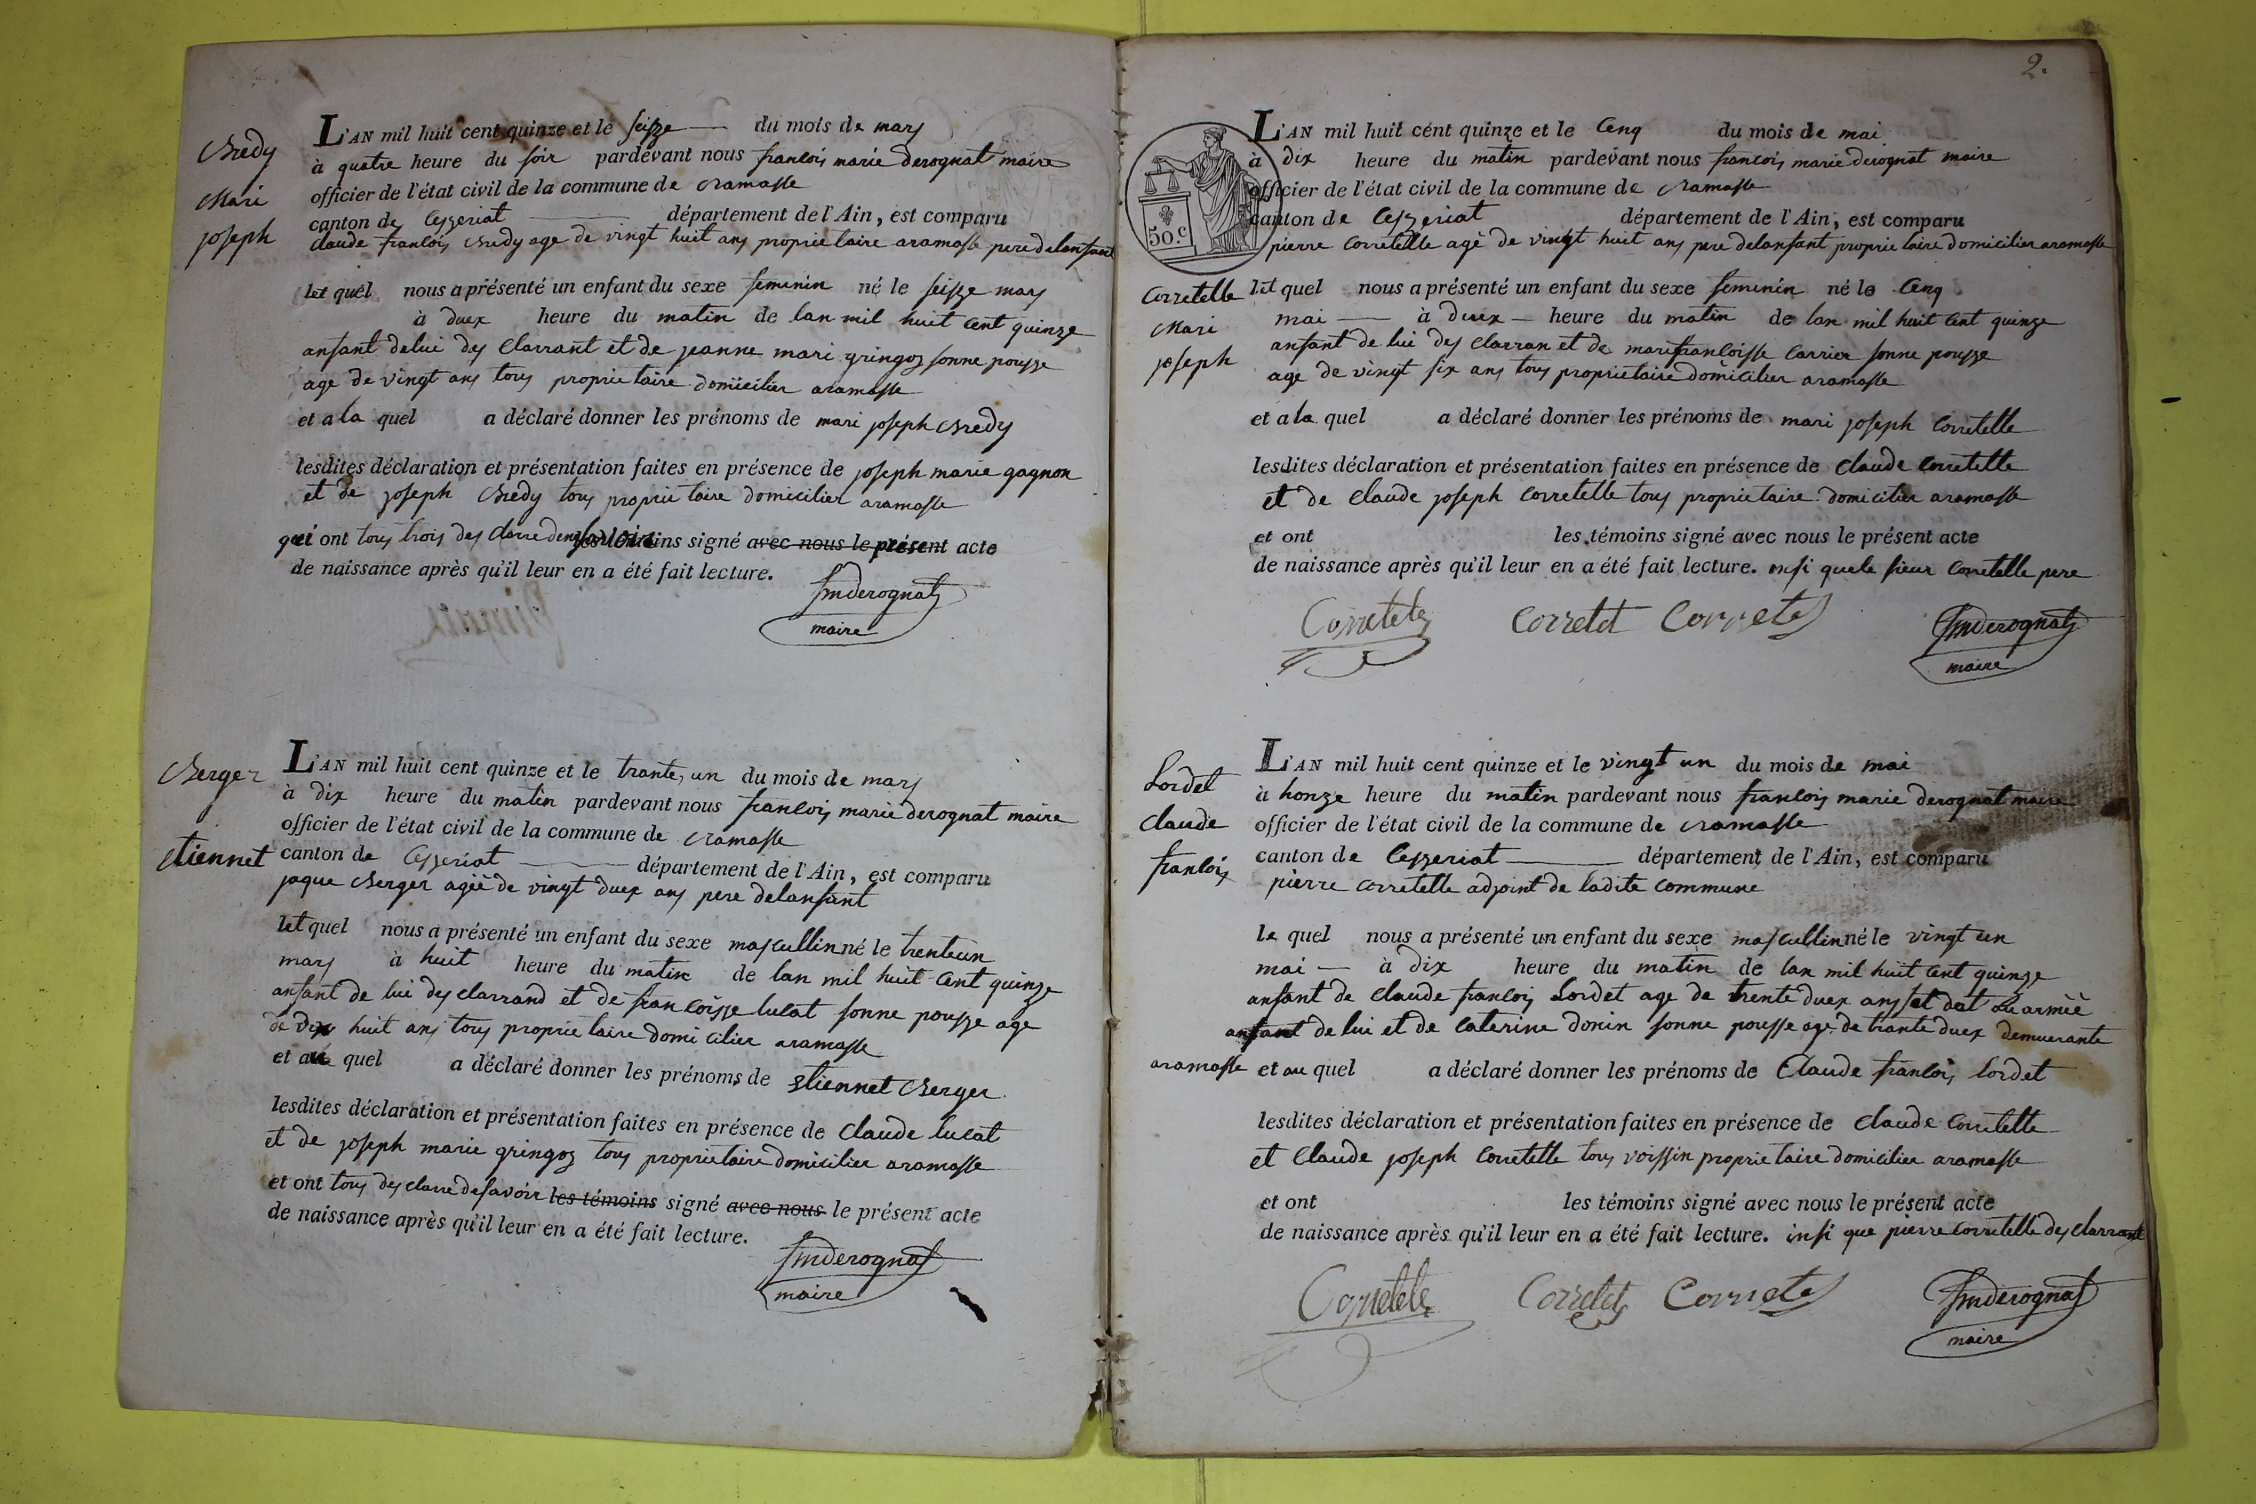 Bredy
Mari
joseph
L'AN mil huit cent quinze et le seisze du mois de mars
à quatre heure du soir pardevant nous francois marie derognat maire
officier de l'état civil de la commune de ramasse
canton de Cesseriat département de l'Ain, est comparu
claude francois Bredy age de vingt huit ans proprie taire aramasse pere delansant
let quel nous a présenté un enfant du sexe feminin né le seisze mars
à duex heure du matin de lan mil huit cent quinze
ansant delui des clarrant et de jeanne mari gringoz sonne pousse
age de vingt ans tous proprie taire domicilier aramasse
et a la quel a déclaré donner les prénoms de mari joseph Bredy
lesdites déclaration et présentation faites en présence de joseph marie gagnon
et de joseph Bredy tous proprie taire domicilier aramasse
qui ont tous trois des clarre signé avec nous le présent acte
de naissance après qu'il leur en a été fait lecture.
fmderognat
maire
Berger
etiennet
L'AN mil huit cent quinze et le trante, un du mois de mars
à dix heure du matin pardevant nous francois marie derognat maire
officier de l'état civil de la commune de ramasse
canton de Cesseriat département de l'Ain, est comparu
jaque Berger agéè de vingt duex ans pere delansant
let quel nous a présenté un enfant du sexe mascullin né le trenteun
mars à huit heure du matin de lan mil huit cent quinze
ansant de lui des clarrand et de francoisse lucat sonne pousze age
de dix huit ans tous proprie taire domi cilier aramasse
et au quel a déclaré donner les prénoms de etiennet Berger
lesdites déclaration et présentation faites en présence de claude lucat
et de joseph marie gringoz tous proprietaire domicilier aramasse
et ont tous des clarre desavoir les témoins signé avec nous le présent acte
de naissance après qu'il leur en a été fait lecture.
fmderognat
maire
2.
50.c
L'AN mil huit cent quinze et le cenq du mois de mai
à dix heure du matin pardevant nous francois marie derognat maire
officier de l'état civil de la commune de ramasse
canton de Cesseriat département de l'Ain, est comparu
pierre corretelle agè de vingt huit ans pere delansant proprie taire domicilier aramasse
corretelle
Mari
joseph
let quel nous a présenté un enfant du sexe feminin né le cenq
mai à duex heure du matin de lan mil huit cent quinze
ansant de lui des clarran et de marifrancoisse carrier sonne pousze
age de vingt six ans tous proprietaire domicilier aramasse
et a la quel a déclaré donner les prénoms de mari joseph corretelle
lesdites déclaration et présentation faites en présence de claude corretelle
et de claude joseph corretelle tous proprietaire domicilier aramasse
et ont les témoins signé avec nous le présent acte
de naissance après qu'il leur en a été fait lecture. insi quele sieur corretelle pere
Corretele Corretet Corretet fmderognat
maire
Lordet
claude
francois
L'AN mil huit cent quinze et le vingt un du mois de mai
à honze heure du matin pardevant nous francois marie derognat maire
officier de l'état civil de la commune de ramasse
canton de Cesseriat département de l'Ain, est comparu
pierre corretelle adjoint de ladite commune
le quel nous a présenté un enfant du sexe mascullin né le vingt un
mai à dix heure du matin de lan mil huit cent quinze
ansant de claude francois Lordet age de trente duex ans sol dat au armèè
ansant de lui et de caterine donin sonne pousse age de trante duex demuerante
aramasse et au quel a déclaré donner les prénoms de Claude francois lordet
lesdites déclaration et présentation faites en présence de claude corretelle
et claude joseph corretelle tous voissin proprie taire domicilier aramasse
et ont les témoins signé avec nous le présent acte
de naissance après qu'il leur en a été fait lecture. insi que pierre corretelle des clarrant
Corretele Corretet Corretet fmderognat
maire